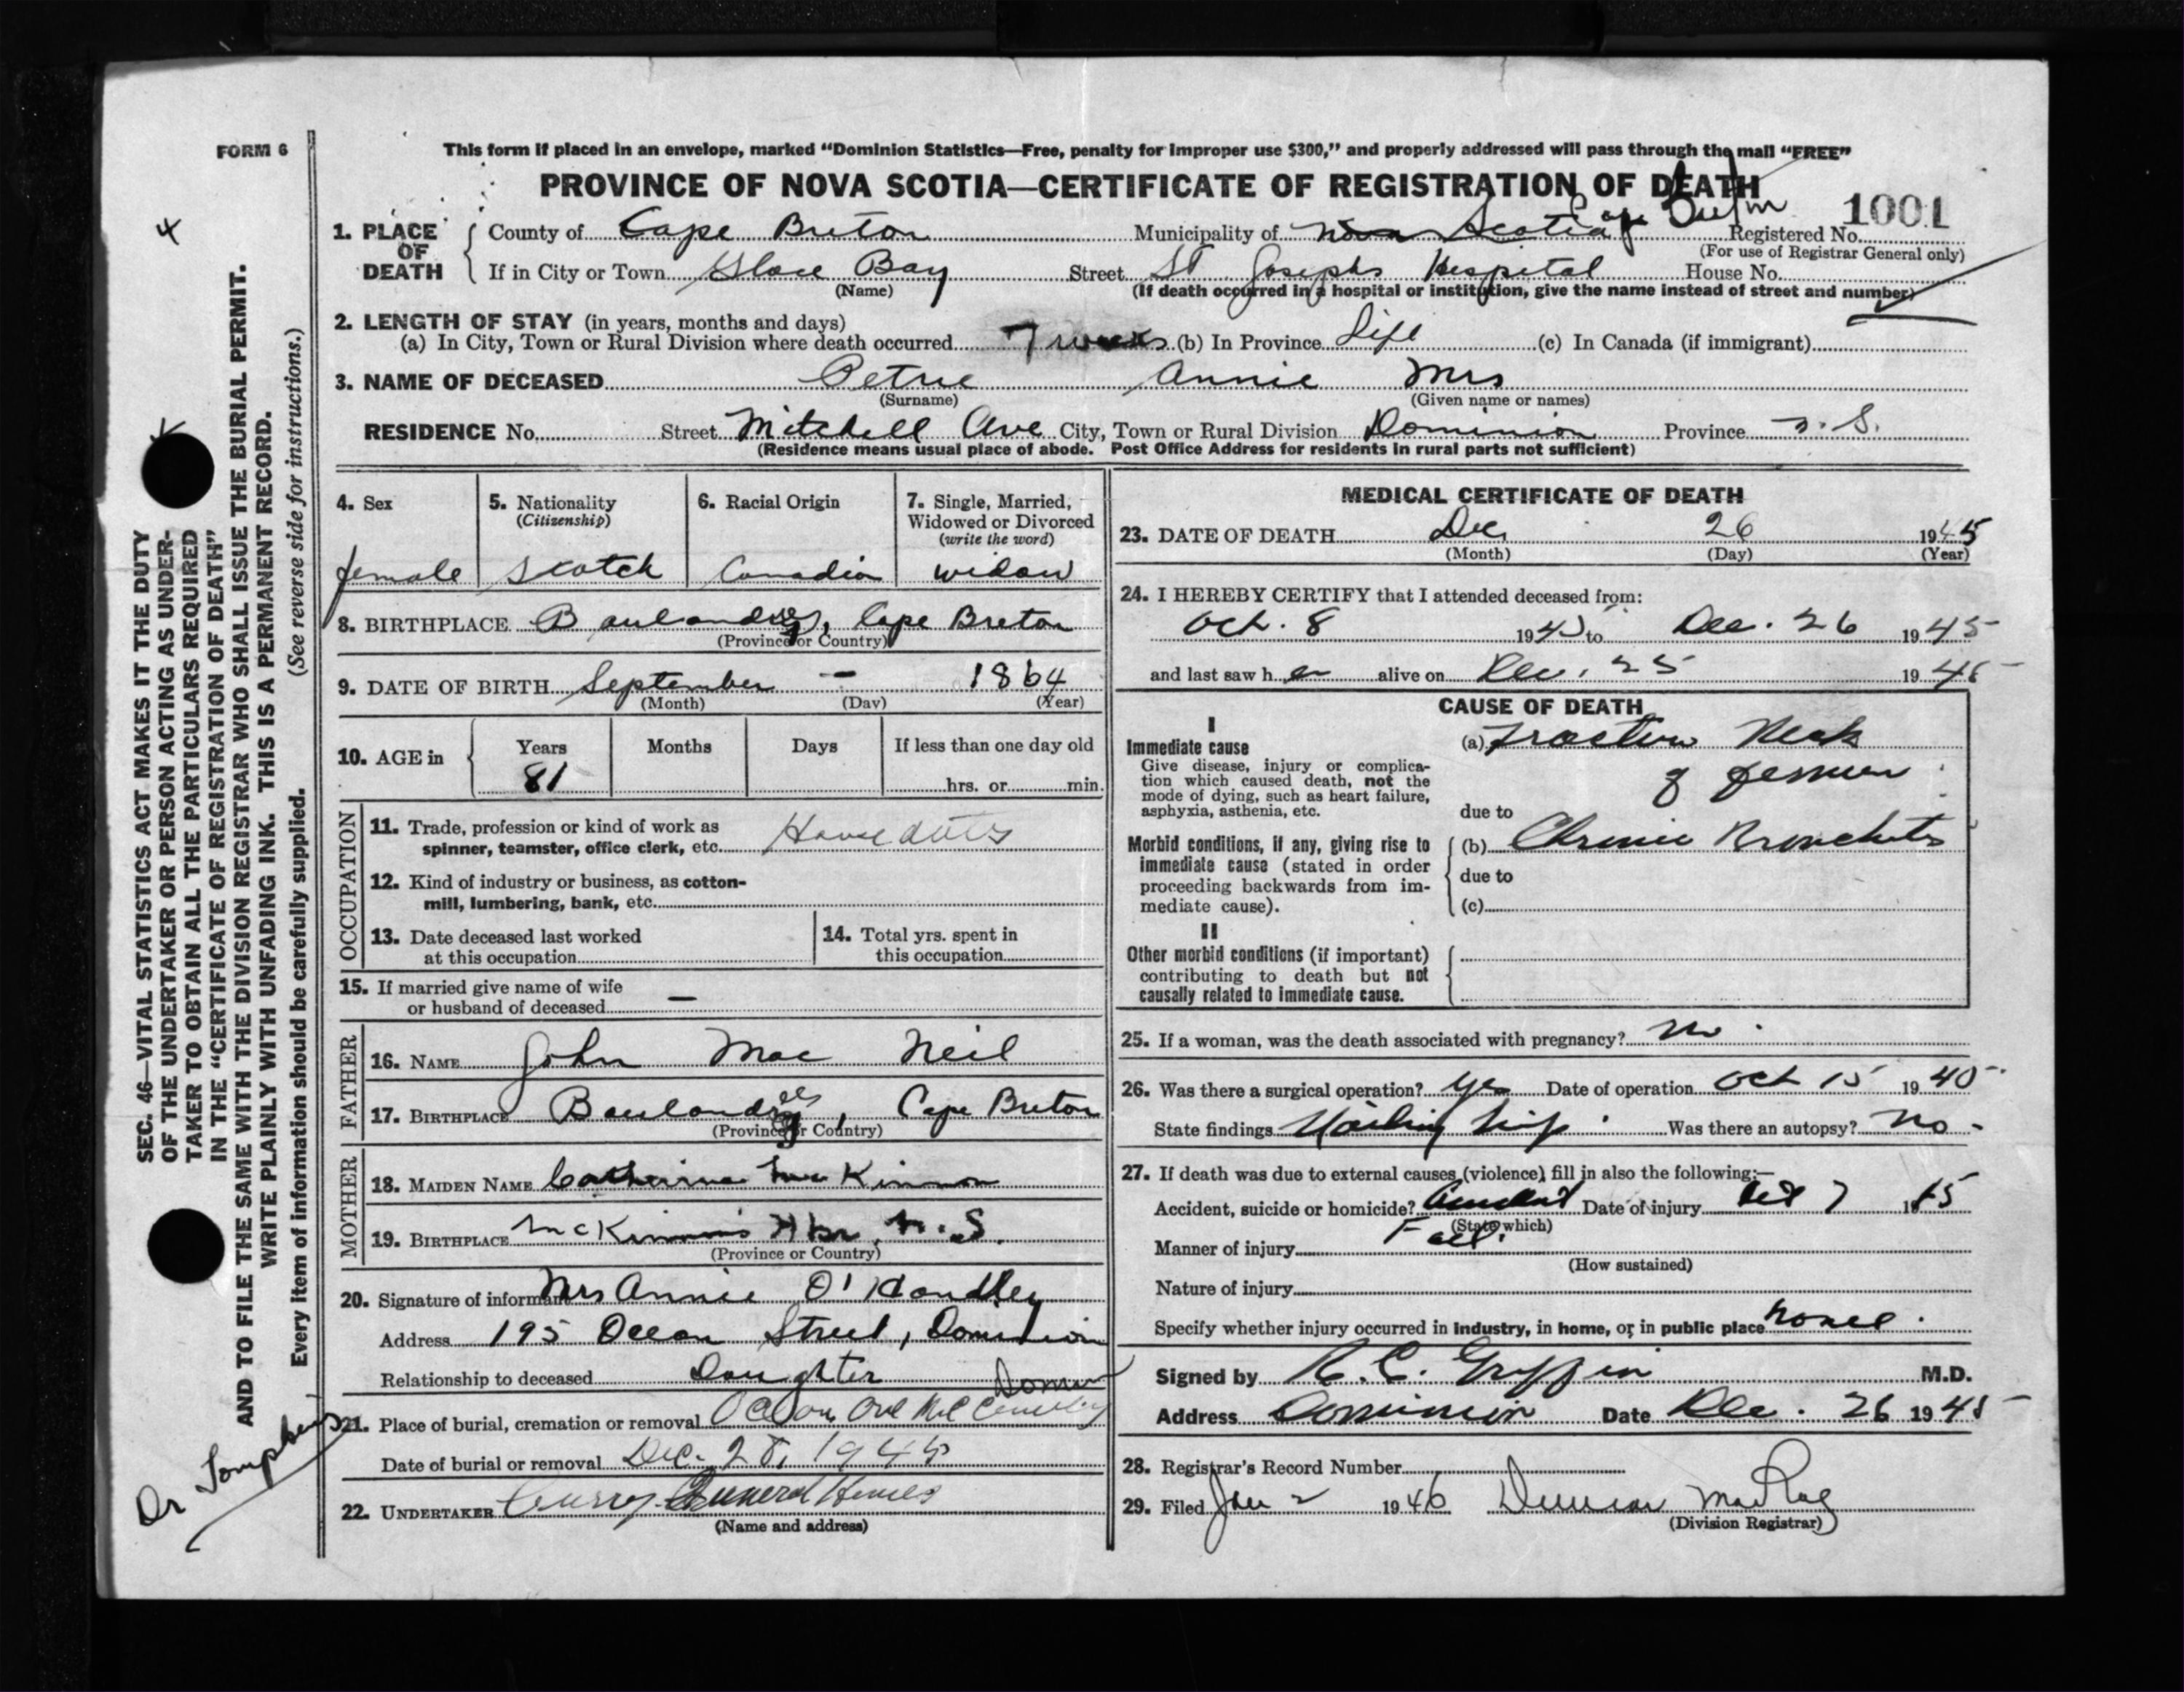 FORM 6
This form if placed in an envelope, marked "Dominion Statistics—Free, penalty for improper use $300," and properly addressed will pass through the mail "FREE"
PROVINCE OF NOVA SCOTIA—CERTIFICATE OF REGISTRATION OF DEATH
1001
1. PLACE OF DEATH
County of Cape Breton Municipality of Nova Scotia Cape Breton Registered No.
(For use of Registrar General only)
If in City or Town Glace Bay Street St Josephs Hospital House No.
(Name) (If death occurred in a hospital or institution, give the name instead of street and number)
2. LENGTH OF STAY (in years, months and days)
(a) In City, Town or Rural Division where death occurred 7 weeks (b) In Province Life (c) In Canada (if immigrant)
3. NAME OF DECEASED Petrie Annie Mrs
(Surname) (Given name or names)
RESIDENCE No. Street Mitchell Ave City, Town or Rural Division Dominion Province N. S.
(Residence means usual place of abode. Post Office Address for residents in rural parts not sufficient)
4. Sex
female
5. Nationality
(Citizenship)
Scotch
6. Racial Origin
Canadian
7. Single, Married,
Widowed or Divorced
(write the word)
widow
8. BIRTHPLACE Cape Breton
(Province or Country)
9. DATE OF BIRTH September – 1864
(Month) (Day) (Year)
10. AGE in
Years
81
Months
Days
If less than one day old
hrs. or min.
OCCUPATION
11. Trade, profession or kind of work as
spinner, teamster, office clerk, etc. House duties
12. Kind of industry or business, as cotton-
mill, lumbering, bank, etc.
13. Date deceased last worked
at this occupation
14. Total yrs. spent in
this occupation
15. If married give name of wife
or husband of deceased –
FATHER
16. NAME John Mac Neil
17. BIRTHPLACE Cape Breton
(Province or Country)
MOTHER
18. MAIDEN NAME Catherine McKinnon
19. BIRTHPLACE McKinnons Hbr, N. S.
(Province or Country)
20. Signature of informant Mrs Annie O'Handley
Address 195 Ocean Street, Dominion
Relationship to deceased Daughter
21. Place of burial, cremation or removal Dominion
Date of burial or removal Dec. 28, 1945
22. UNDERTAKER Curry Funeral Homes
(Name and address)
MEDICAL CERTIFICATE OF DEATH
23. DATE OF DEATH Dec 26 1945
(Month) (Day) (Year)
24. I HEREBY CERTIFY that I attended deceased from:
Oct. 8 1945 to Dec. 26 1945
and last saw her alive on Dec. 25 1945
CAUSE OF DEATH
I
Immediate cause
Give disease, injury or complica-
tion which caused death, not the
mode of dying, such as heart failure,
asphyxia, asthenia, etc.
(a) Fracture Neck
of femur
due to
Morbid conditions, if any, giving rise to
immediate cause (stated in order
proceeding backwards from im-
mediate cause).
(b) Chronic Bronchitis
due to
(c)
II
Other morbid conditions (if important)
contributing to death but not
causally related to immediate cause.
25. If a woman, was the death associated with pregnancy? No
26. Was there a surgical operation? Yes Date of operation Oct 15 1945
State findings Nailing hip Was there an autopsy? No
27. If death was due to external causes (violence) fill in also the following:—
Accident, suicide or homicide? Accident Date of injury Oct 7 1945
(State which)
Manner of injury Fall.
(How sustained)
Nature of injury
Specify whether injury occurred in industry, in home, or in public place home
Signed by R. C. Griffin M.D.
Address Dominion Date Dec. 26 1945
28. Registrar's Record Number
29. Filed Jan 2 1946 Duncan MacRae
(Division Registrar)
SEC. 46—VITAL STATISTICS ACT MAKES IT THE DUTY
OF THE UNDERTAKER OR PERSON ACTING AS UNDER-
TAKER TO OBTAIN ALL THE PARTICULARS REQUIRED
IN THE "CERTIFICATE OF REGISTRATION OF DEATH"
AND TO FILE THE SAME WITH THE DIVISION REGISTRAR WHO SHALL ISSUE THE BURIAL PERMIT.
WRITE PLAINLY WITH UNFADING INK. THIS IS A PERMANENT RECORD.
Every item of information should be carefully supplied. (See reverse side for instructions.)
Dr Tompkins